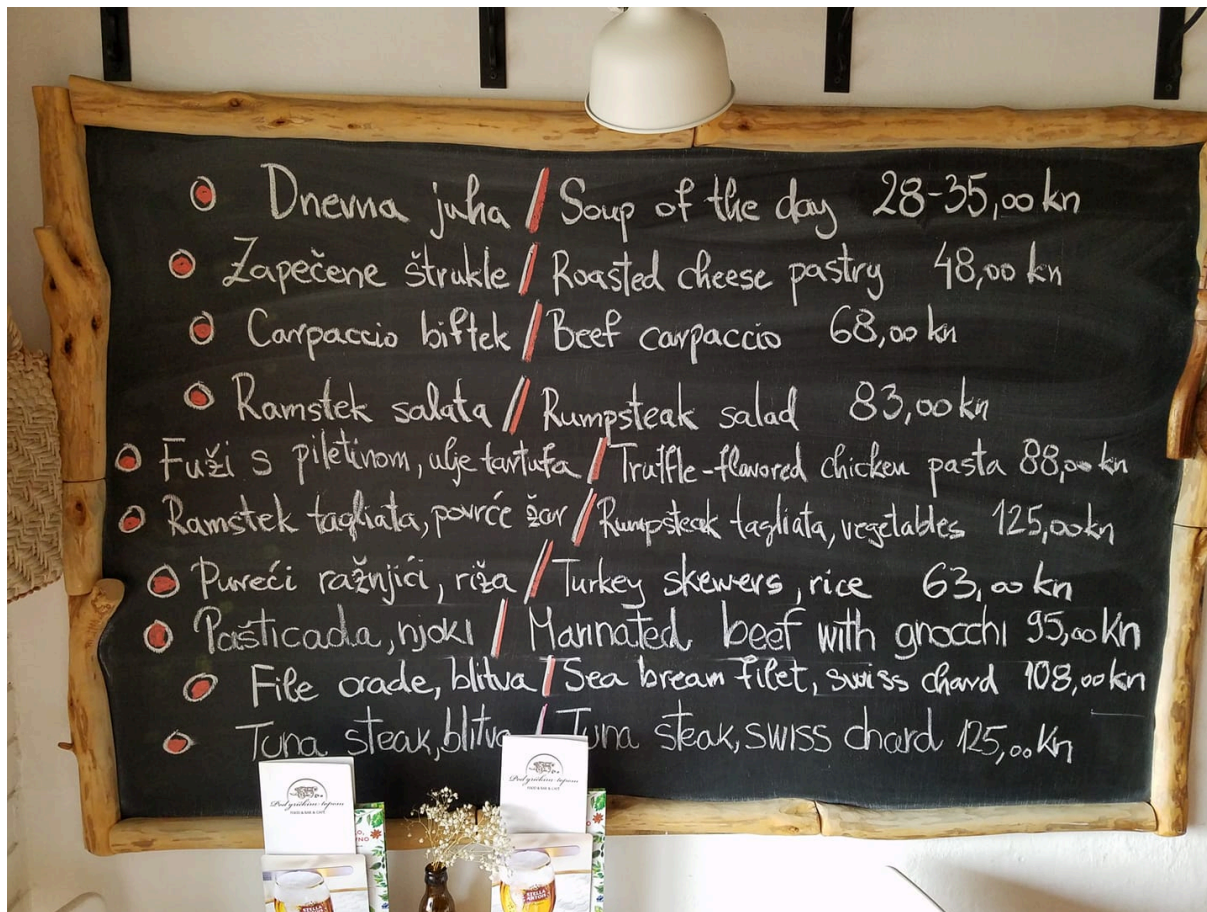 Dnevna juha / Soup of the day 28-35,00 kn
Zapečene štrukle / Roasted cheese pastry 48,00 kn
Carpaccio biftek / Beef carpaccio 68,00 kn
Ramstek salata / Rumpsteak salad 83,00 kn
Fuži s piletinom, ulje tartufa / Truffle-flavored chicken pasta 88,00 kn
Ramstek tagliata, povrće žar / Rumpsteak tagliata, vegetables 125,00 kn
Pureći ražnjići, riža / Turkey skewers, rice 63,00 kn
Pašticada, njoki / Marinated beef with gnocchi 95,00 Kn
File orade, blitva / Sea bream filet, swiss chard 108,00 kn
Tuna steak, blitva / Tuna steak, swiss chard 125,00 Kn
Pod gričkim topom
FOOD & BAR & CAFE
Pod gričkim topom
FOOD & BAR & CAFE
STELLA ARTOIS